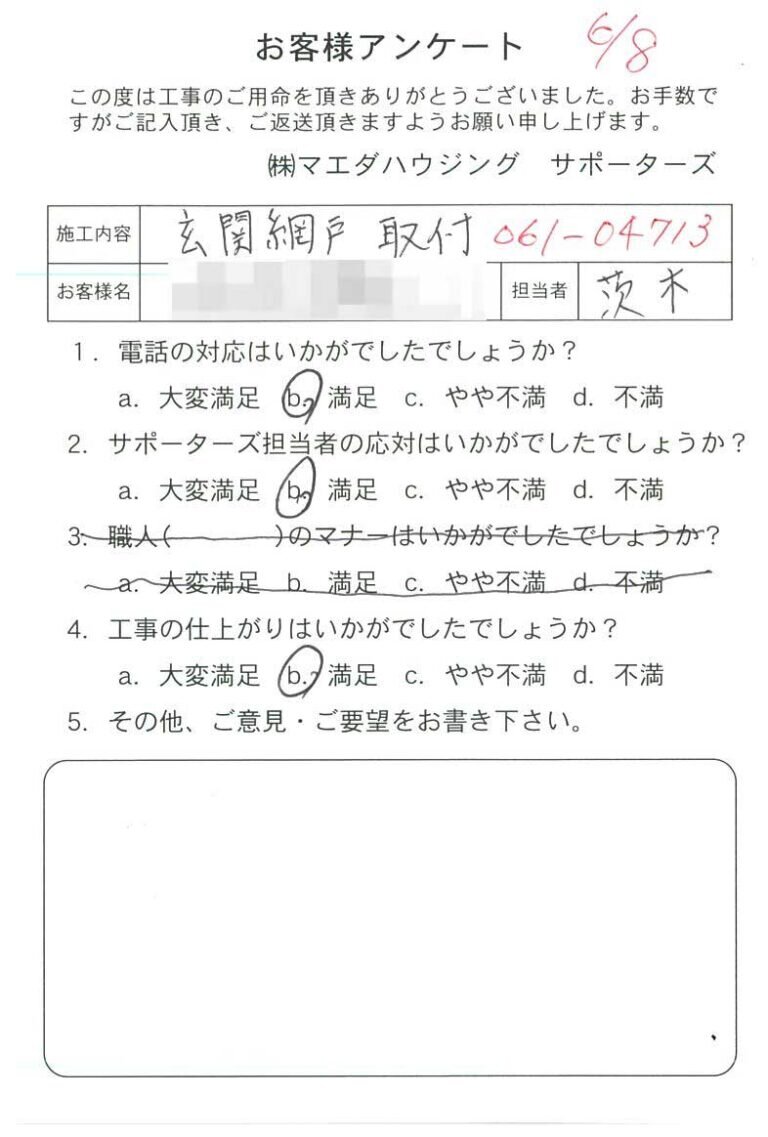 お客様アンケート 6/8
この度は工事のご用命を頂きありがとうございました。お手数で
すがご記入頂き、ご返送頂きますようお願い申し上げます。
㈱マエダハウジング サポーターズ
施工内容 玄関網戸 取付 061-04713
お客様名 担当者 茨木
1. 電話の対応はいかがでしたでしょうか？
a. 大変満足 b. 満足 c. やや不満 d. 不満
2. サポーターズ担当者の応対はいかがでしたでしょうか？
a. 大変満足 b. 満足 c. やや不満 d. 不満
3. 職人( )のマナーはいかがでしたでしょうか？
a. 大変満足 b. 満足 c. やや不満 d. 不満
4. 工事の仕上がりはいかがでしたでしょうか？
a. 大変満足 b. 満足 c. やや不満 d. 不満
5. その他、ご意見・ご要望をお書き下さい。